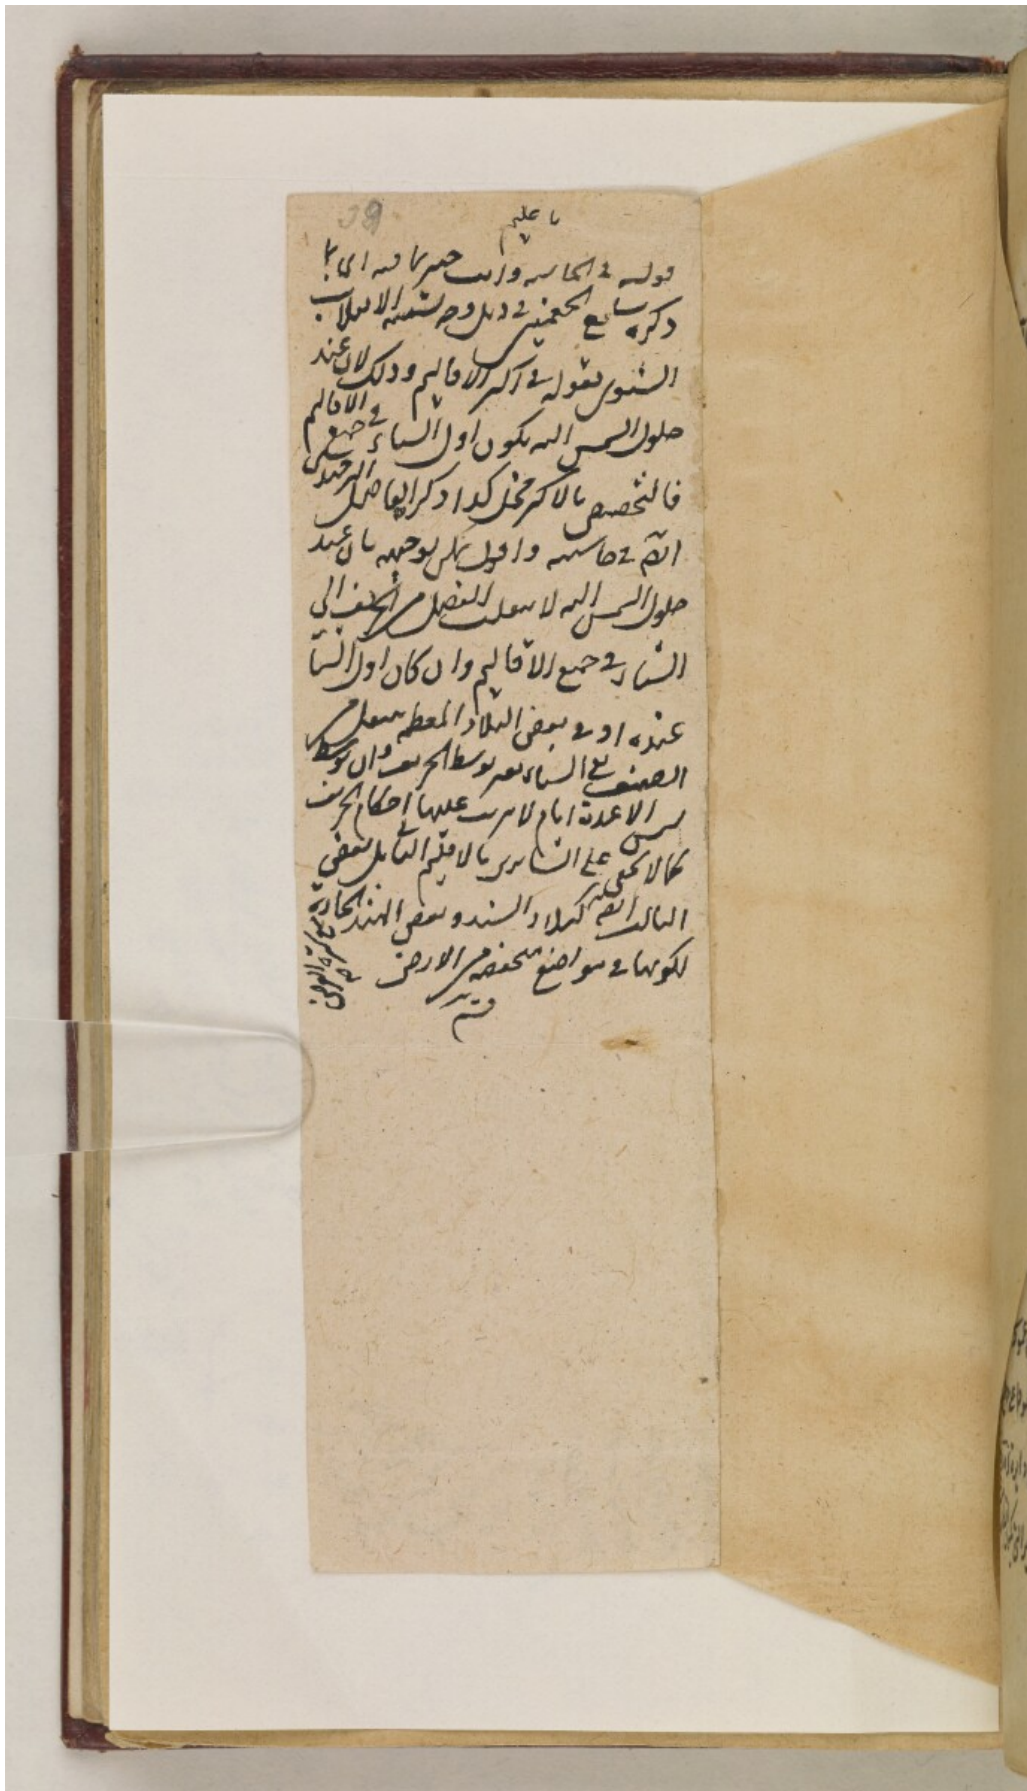 يا عليم
قوله في الحاشيه وانت خبير بما فيه اى بما
ذكره شارح الجغمينى في ذيل وجه تسميه الانقلاب
الشتوى بقوله في اكثر الاقاليم وذلك لان عند
حلول الشمس اليه يكون اول الشتاء في جميع الاقاليم
فالتخصيص بالاكثر مخل كذا ذكر الفاضل البرجندى
في حاشيته واقول يمكن توجيهه بان عند
حلول الشمس اليه لا ينقلب الفصل من الخريف الى
الشتاء في جميع الاقاليم وان كان اول الشتا
عنده اذ في بعض البلاد المعظمه ينقل من
الصيف الى الشتاء بغير توسط الخريف وان توسط
ليس الا عدة ايام لا يترتب عليها احكام الخريف
كما لا يخفى على بالاقليم الثانى بل بعض
الثالث ايضا كبلاد السند وبعض الهند الحارة
لكونها في مواضع منخفضه من الارض